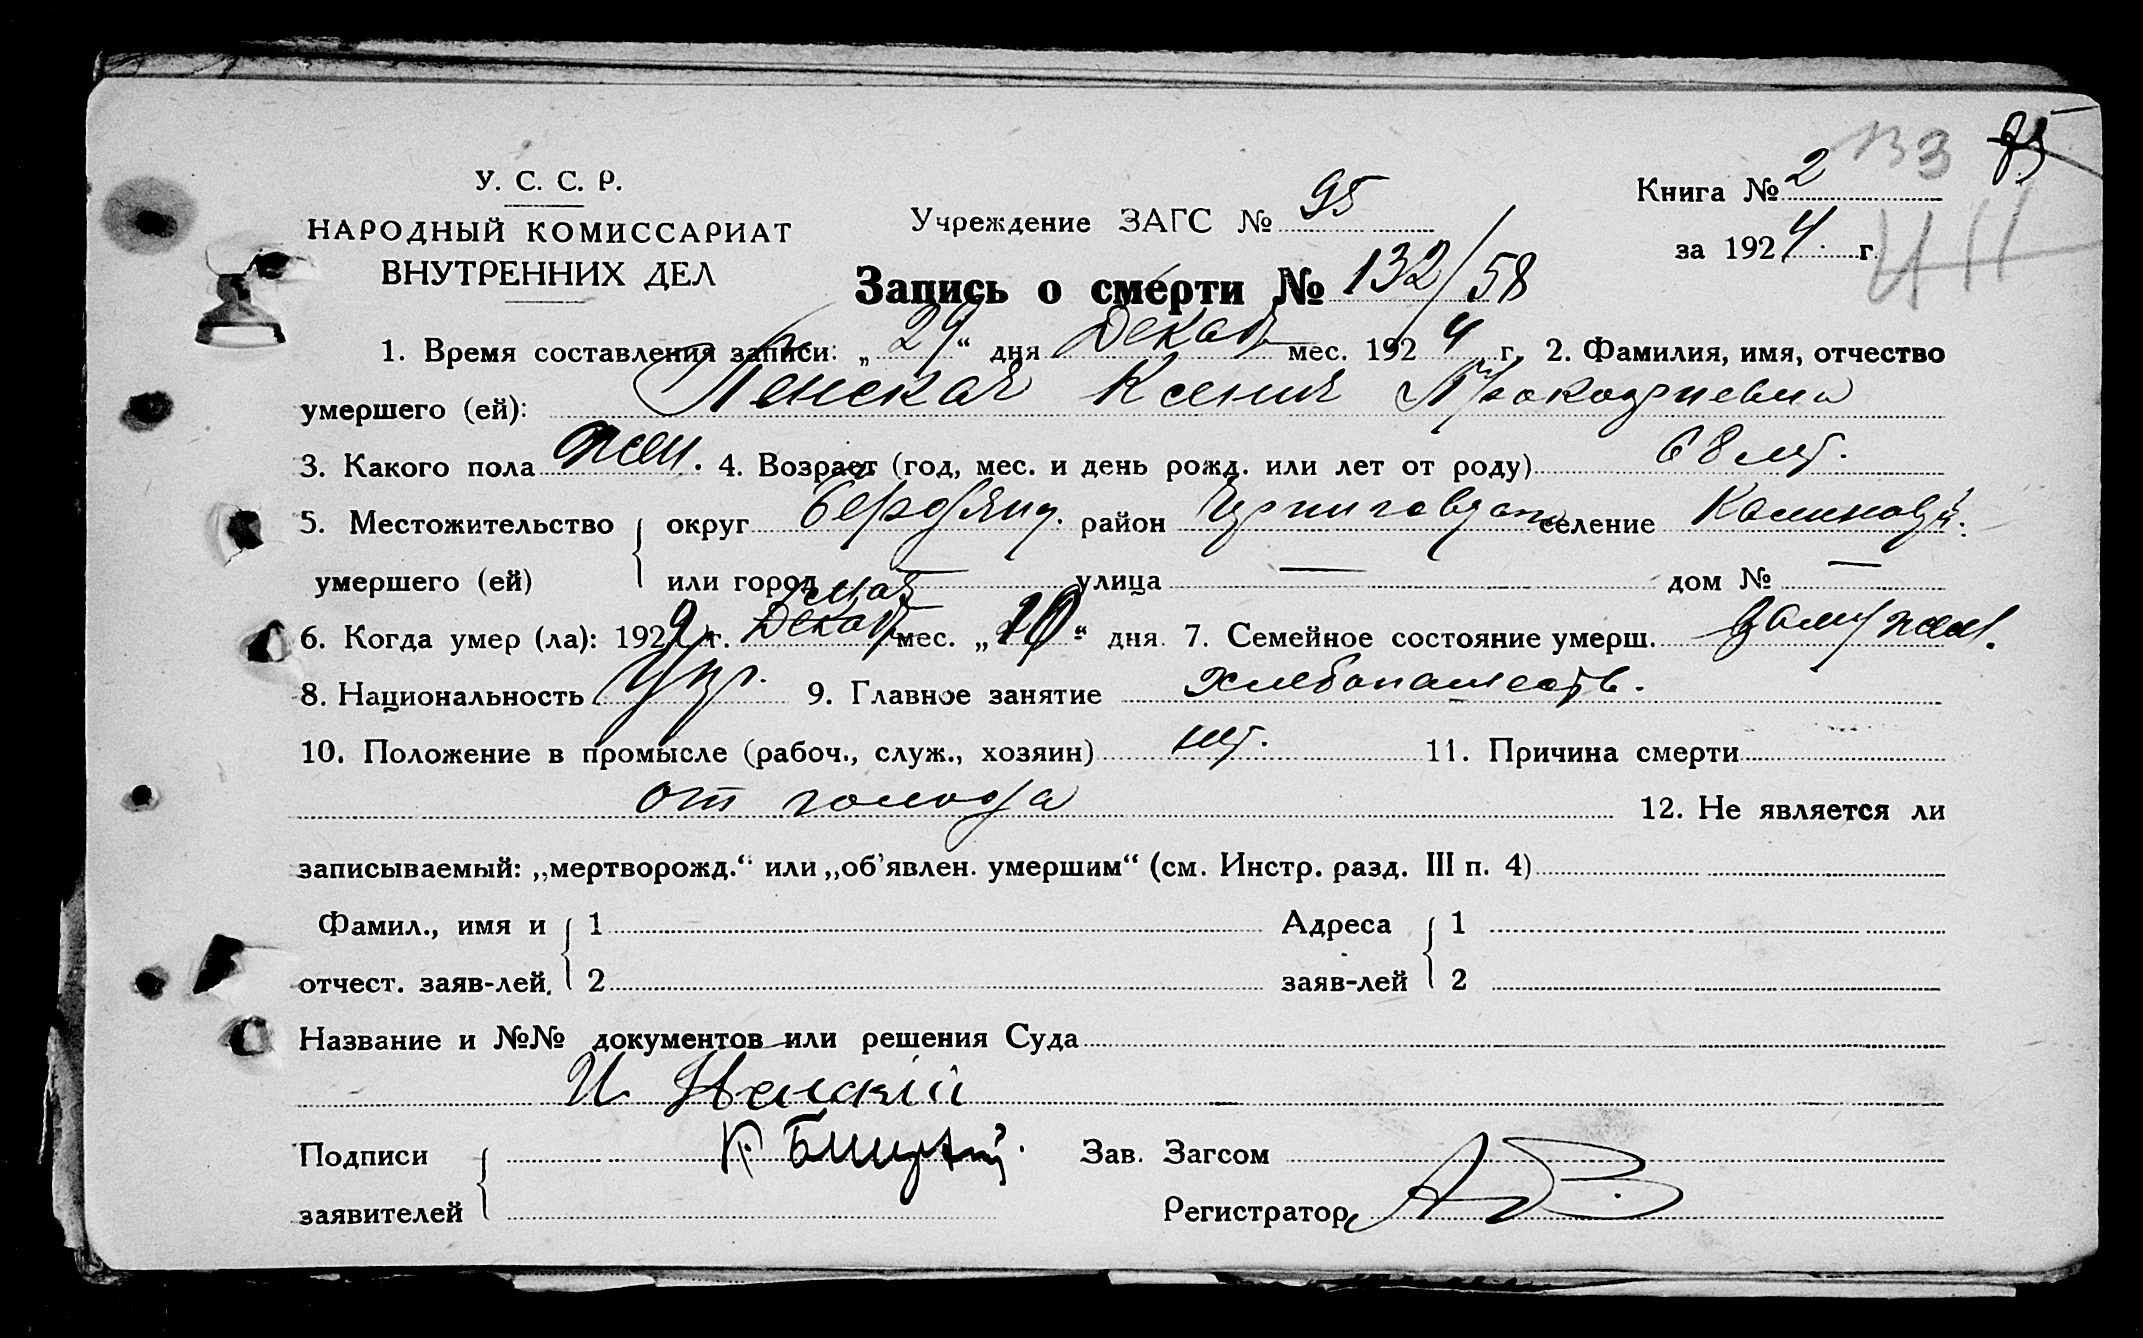 133 95
У. С. С. Р.
НАРОДНЫЙ КОМИССАРИАТ
ВНУТРЕННИХ ДЕЛ
Учреждение ЗАГС № 95
Книга № 2
за 1924 г.
411
Запись о смерти № 132/58
1. Время составления записи: „29“ дня Декаб мес. 1924 г. 2. Фамилия, имя, отчество
умершего (ей): Ксения
3. Какого пола жен. 4. Возраст (год, мес. и день рожд. или лет от роду) 68 лет.
5. Местожительство округ Бердянц. район селение
умершего (ей) или город улица — дом № —
6. Когда умер (ла): 192 г. мая Декаб мес. „ “ дня. 7. Семейное состояние умерш. замужем.
8. Национальность Укр. 9. Главное занятие хлебопашеств.
10. Положение в промысле (рабоч., служ., хозяин) 11. Причина смерти
от голода 12. Не является ли
записываемый: „мертворожд.“ или „об'явлен. умершим“ (см. Инстр. разд. III п. 4)
Фамил., имя и 1 Адреса 1
отчест. заяв-лей. 2 заяв-лей 2
Название и №№ документов или решения Суда
И
Подписи К. Зав. Загсом
заявителей Регистратор